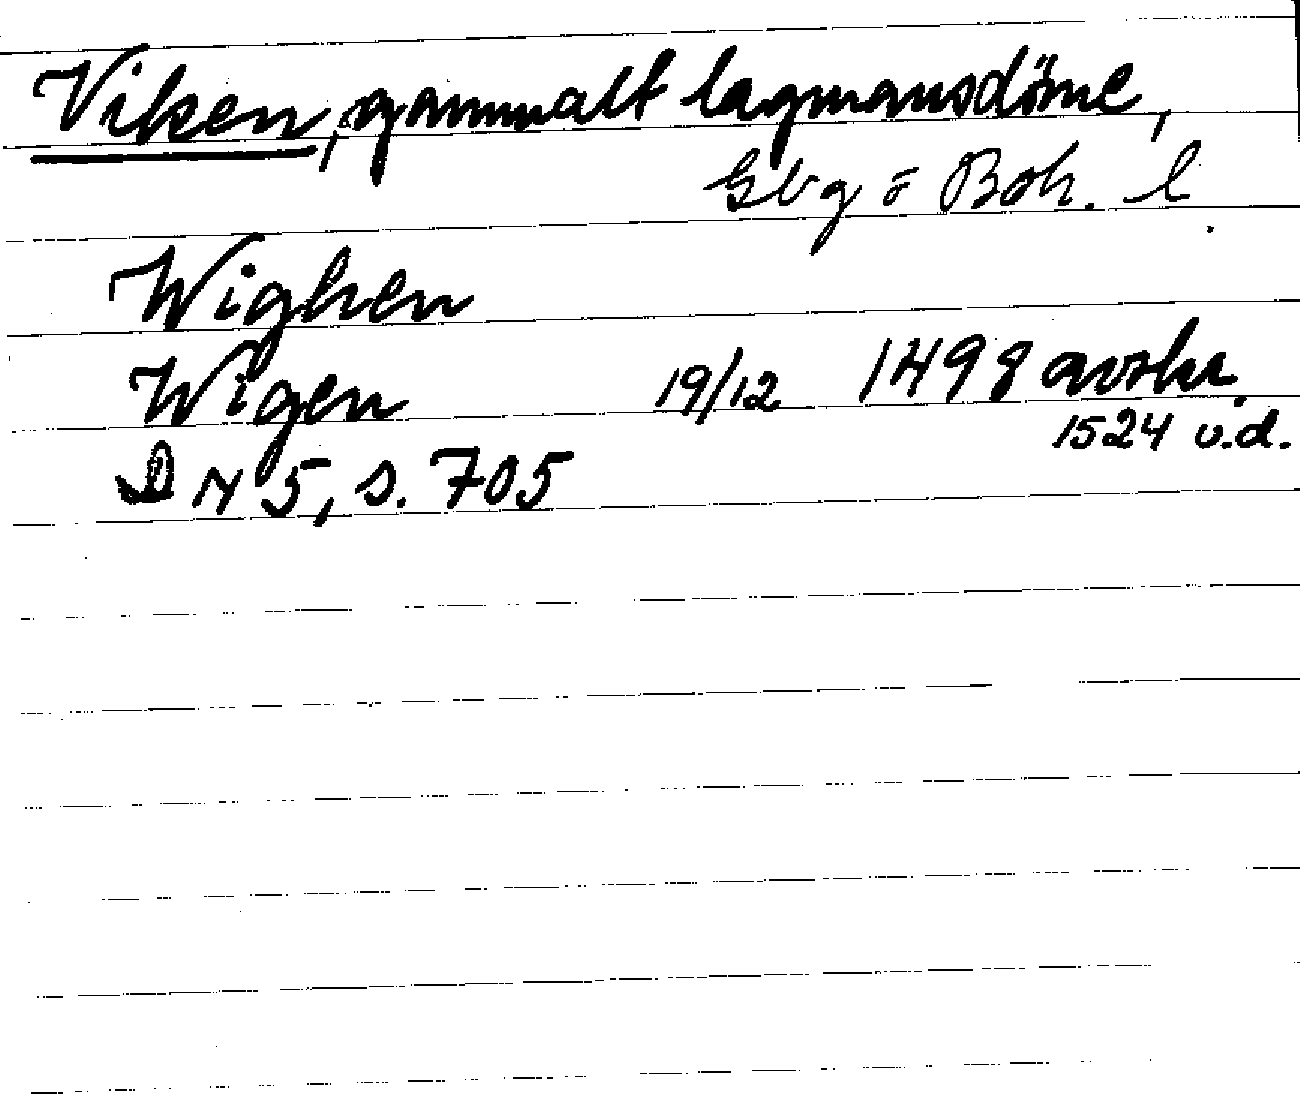 Viken, gammalt lagmansdöme,
Gbg o Boh. l.
Wighen
Wigen 19/12 1498 avskr.
1524 v.d.
DN 5, s. 705